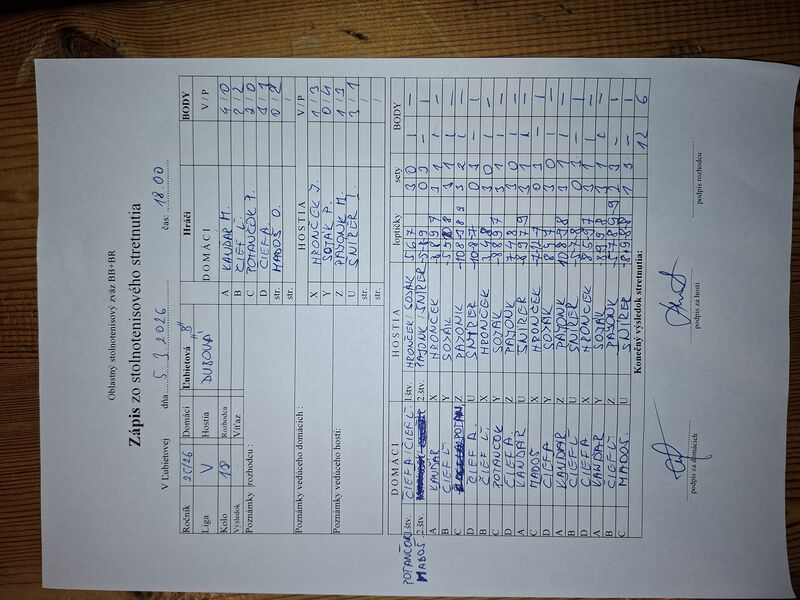 Oblastný stolnotenisový zväz BB+BR
Zápis zo stolnotenisového stretnutia
V Ľubietovej dňa 5. 3. 2026 čas: 18.00
Ročník 25/26 Domáci Ľubietová "B"
Liga V Hostia DUBOVÁ
Kolo 18 Rozhodca
Výsledok Víťaz
Poznámky rozhodcu :
Poznámky vedúceho domácich :
Poznámky vedúceho hostí:
Hráči BODY
DOMÁCI V / P
A KANDAR M. 4/0
B CIEF Ľ. 2/2
C POTANČOK P. 2/0
D CIEF A. 3/1
str. MADOŠ O. 0/2
str. /
HOSTIA V / P
X HRONČEK J. 1/3
Y SOJAK P. 0/4
Z PAJONK M. 1/3
U SNIPER I. 3/1
str. /
str. /
DOMÁCI HOSTIA loptičky sety BODY
1.štv. CIEF A / CIEF Ľ. 1.štv. HRONČEK / SOJAK 5 6 7 3 0 1 –
POTANČOK
MADOŠ 2.štv. 2.štv. PAJONK / SNIPER 0 3 – 1
A KANDAR X HRONČEK 3 1 1 –
B CIEF Ľ. Y SOJAK 3 1 1 –
C Z PAJONK 3 2 1 –
D CIEF A. U SNIPER 1 3 – 1
B CIEF Ľ. X HRONČEK 3 4 8 3 0 1 –
C POTANČOK Y SOJAK 3 1 1 –
D CIEF A. Z PAJONK 7 4 8 3 0 1 –
A KANDAR U SNIPER 3 1 1 –
C MADOŠ X HRONČEK 0 3 – 1
D CIEF A Y SOJAK 3 0 1 –
A KANDAR Z PAJONK 3 1 1 –
B CIEF Ľ. U SNIPER 0 3 – 1
D CIEF A X HRONČEK 3 1 1 –
A KANDAR Y SOJAK 3 1 1 –
B CIEF Ľ. Z PAJONK 2 3 – 1
C MADOŠ. U SNIPER 1 3 – 1
Konečný výsledok stretnutia: 12 6
podpis za domácich podpis za hostí podpis rozhodcu